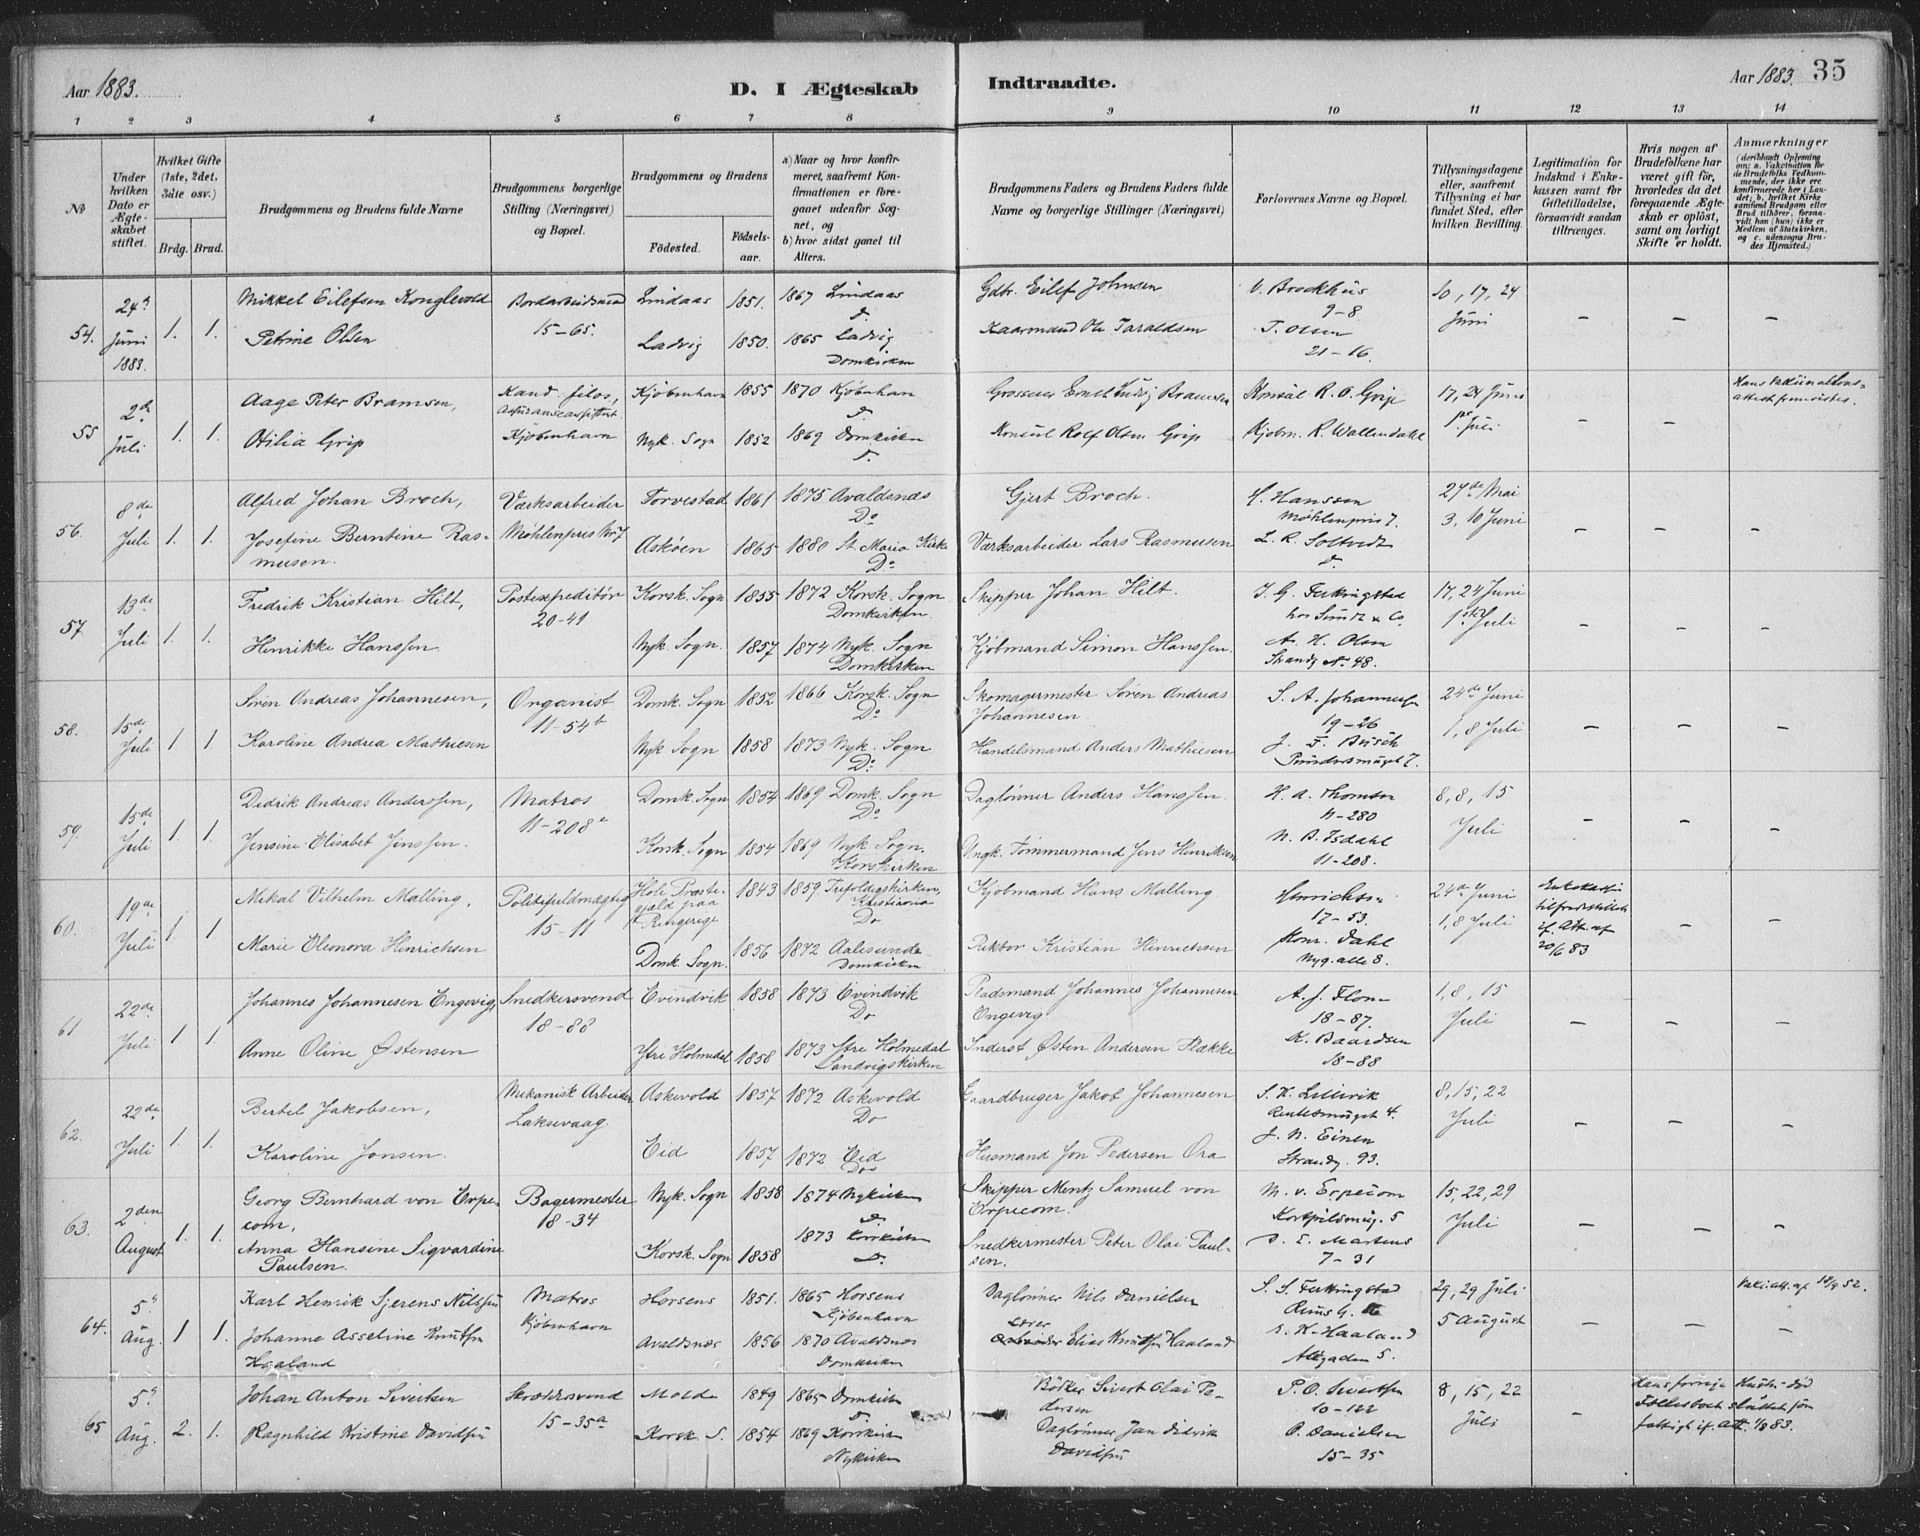 Aar 1883.
D. I Ægteskab Indtraadte.
Aar 1883. 35
1 2 3 4 5 6 7 8 9 10 11 12 13 14
№
Under hvilken Dato er Ægteskabet stiftet.
Hvilket Gifte (1ste, 2det, 3die osv.)
Brdg. Brud.
Brudgommens og Brudens fulde Navne
Brudgommens borgerlige Stilling (Næringsvei) og Bopæl.
Brudgommens og Brudens
Födested.
Födselsaar.
a) Naar og hvor konfirmeret, saafremt Konfirmationen er foregaaet udenfor Sognet, og
b) hvor sidst gaaet til Alters.
Brudgommens Faders og Brudens Faders fulde Navne og borgerlige Stillinger (Næringsvei)
Forlovernes Navne og Bopæl.
Tillysningsdagene eller, saafremt Tillysning ei har fundet Sted, efter hvilken Bevilling.
Legitimation for Indskud i Enkekassen samt for Giftetilladelse, forsaavidt saadan tiltrænges.
Hvis nogen af Brudefolkene har været gift för, hvorledes da det foregaaende Ægteskab er oplöst, samt om lovligt Skifte er holdt.
Anmærkninger
(deriblandt Oplysning om: a. Vakcination for de Brudefolks Vedkommende, der ikke ere konfirmerede her i Landet; b. hvilket Kirkesamfund Brudgom eller Brud tilhörer, forsaavidt han (hun) ikke er Medlem af Statskirken, og c. udensogns Brudes Hjemsted.)
54. 24de Juni 1883. 1. 1.
Mikkel Eilefsen Konglevold
15-65.
Lindaas 1851. 1867 Lindaas
Do
Gdbr. Eilef Johnsen
V. Brockhus
9-8
10, 17, 24 Juni
Petrine Olsen
Ladvig 1850. 1865 Ladvig
Domkirken
Kaarmand Ole Taraldsen
T. Olsen
21-16.
- - -
55 2de Juli 1. 1.
Aage Peter Bramsen,
Kand. filos,
Kjøbenhavn
Kjøbenhavn 1855 1870 Kjøbenhavn
Do
Grosserer Ernst Ludvig Bramsen
Konsul R. O. Grip
17, 24 Juni
1ste Juli
Hans Vakcinationsattest fremvistes.
Otilia Grip
Nyk. Sogn 1852 1869 Domkirken
Do
Konsul Rolf Olsen Grip
Kjøbm. R. Wallendahl
- -
56. 8de Juli 1. 1.
Alfred Johan Broch,
Værksarbeider
Møhlenpris No 7
Torvestad 1861 1875 Avaldsnæs
Do
Gjert Broch.
H. Hanssen
Møhlenpris 7.
27de Mai
3, 10 Juni
Josefine Berntine Rasmusen.
Askøen 1865 1880 St. Maria Kirke
Do
Værksarbeider Lars Rasmusen
L. R. Soltvedt
Do
- - -
57. 13de Juli 1. 1.
Fredrik Kristian Hilt,
Postexpeditør
20-41
Korsk. Sogn 1855 1872 Korsk. Sogn
Domkirken.
Skipper Johan Hilt.
hos Sundt & Co.
17, 24 Juni
1ste Juli
Henrikke Hanssen
Nyk. Sogn. 1857 1874 Nyk. Sogn
Domkirken
Kjøbmand Simon Hanssen.
A. H. Olsen
Strandg. No 48.
- - -
58. 15de Juli 1 1
Søren Andreas Johannesen,
Organist
11-54b
Domk. Sogn 1852 1866 Korsk. Sogn
Do
Skomagermester Søren Andreas Johannesen
S. A. Johannesen
19-26
24de Juni
1, 8 Juli
Karoline Andrea Mathiesen
Nyk. Sogn 1858 1873 Nyk. Sogn
Do
Handelsmand Anders Mathiesen
J. F. Busch
- - -
59. 15de Juli 1. 1.
Didrik Andreas Anderssen,
Matros
11-208a
Domk. Sogn 1854 1869 Domk. Sogn
Do
Daglönner Anders Hanssen.
H. A. Thomsen
11-280
8, 8, 15 Juli
Jensine Elisabet Jenssen.
Korsk. Sogn 1854 1869 Nyk. Sogn.
Korskirken
Ungk. Tømmermand Jens Henriksen
N. B. Isdahl
11-208.
- - -
60. 19de Juli 1. 1
Mikal Vilhelm Malling,
Politifuldmægtig
15-11
Hole Præstegjæld paa Ringerige 1843 1859 Trefoldigskirken, Kristiania
Do
Kjøbmand Hans Malling
Henrichsen
17-53.
24de Juni
1, 8 Juli
Enkekassen tilfredsstillet if. Att. af 20/6 83
Marie Eleonora Henrichsen
Domk. Sogn. 1856 1872 Aalesund
Domkirken
Rektor Kristian Henrichsen
Konr. Dahl
Nyg. alle 8.
- -
61 22de Juli 1 1
Johannes Johannesen Engevig,
Snedkersvend
18-88
Evindvik 1858 1873 Evindvik
Do
Pladsmand Johannes Johannesen Engevig
18-87.
1, 8, 15 Juli
Anne Oline Østensen
Ytre Holmedal 1858 1873 Ytre Holmedal
Sandvigskirken
Inderst Østen Andersen Flække
K. Baardsen
18-88
- - -
62. 22de Juli 1. 1.
Bertel Jakobsen,
Mekanisk Arbeider
Laksevaag
Askevold 1857 1872 Askevold
Do
Gaardbruger Jakob Johannesen
S. K. Lillevik
8, 15, 22 Juli
Karoline Jonsen.
Eid 1857 1872 Eid
Do
Husmand Jon Pedersen Øra
J. N. Einen
Strandg. 93.
- - -
63. 2den August 1. 1.
Georg Bernhard von Erpecom,
Bagermester
18-34
Nyk. Sogn 1858 1874 Nykirken
Do
Skipper Mentz Samuel von Erpecom.
M. v. Erpecom
15, 22, 29 Juli
Anna Hansine Sigvardine Paulsen.
Korsk. Sogn 1858 1873 Korskirken
Do
Snedkermester Peter Olai Paulsen.
E. Martens
7-31
- - -
64. 5te Aug. 1 1.
Karl Henrik Sjerens Nilssen
Matros
Kjøbenhavn
Horsens 1851. 1865 Horsens
Kjøbenhavn
Daglønner Nils Danielsen
S. S. Ferkingstad
29, 29 Juli
5 August
Johanne Asseline Knutsen Haaland
Avaldsnæs 1856 1870 Avaldsnæs
Domkirken
Lærer Elias Knutsen Haaland
E. K. Haaland
Allégaden 5.
- - -
65 5te Aug. 2. 1.
Johan Anton Sivertsen
Skræddersvend
15-35a
Molde 1849 1865 Domkirken
Do
Bödker Sivert Olai Pedersen
P. O. Sivertsen
10-122
8, 15, 22 Juli
Ragnhild Kristine Davidsen
Korsk. S. 1854 1869 Korskirken
Nykirken
Daglønner Jan Didrik Davidsen
O. Danielsen
15-35
-
Hans forrige Hustru død